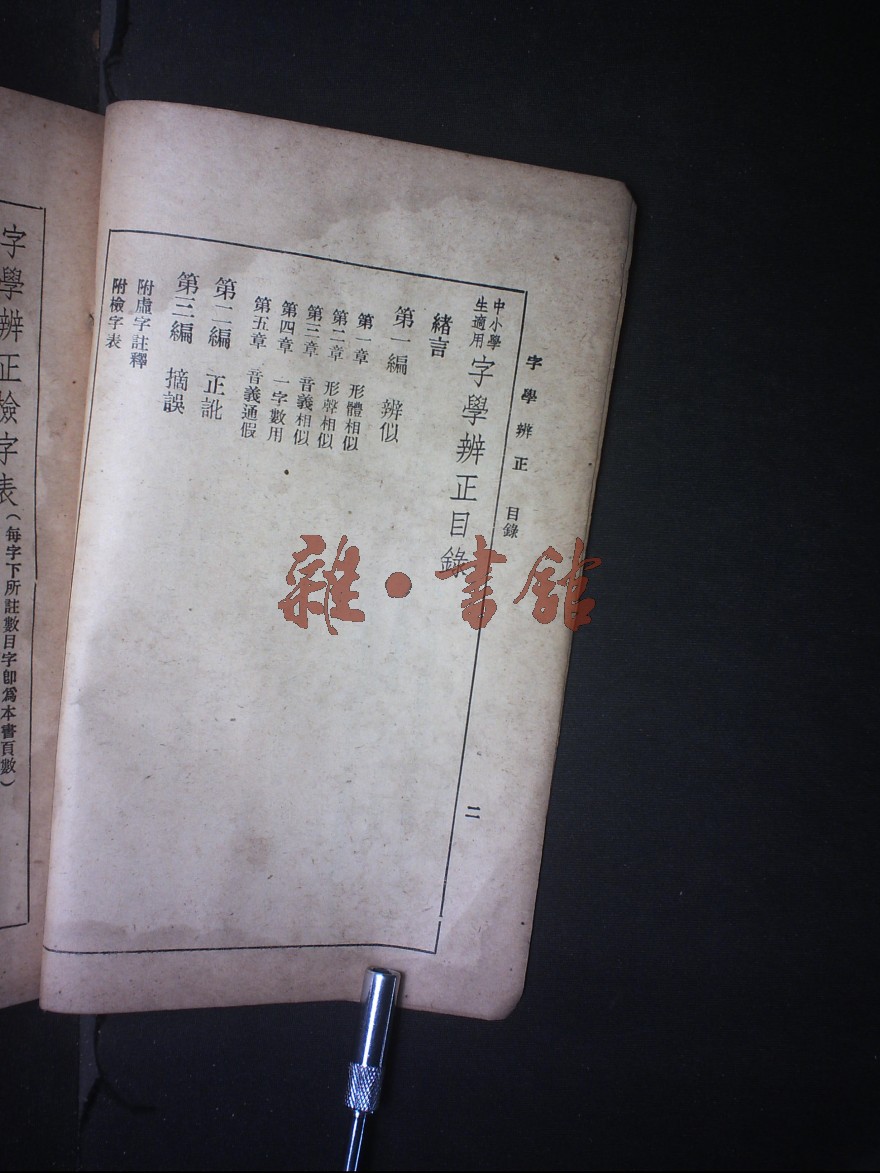 字學辨正 目錄
二
中小學生適用 字學辨正目錄
緒言
第一編 辨似
第一章 形體相似
第二章 形聲相似
第三章 音義相似
第四章 一字數用
第五章 音義通假
第二編 正訛
第三編 摘誤
附虛字註釋
附檢字表
字學辨正檢字表(每字下所註數目字卽爲本書頁數)
雜·書館